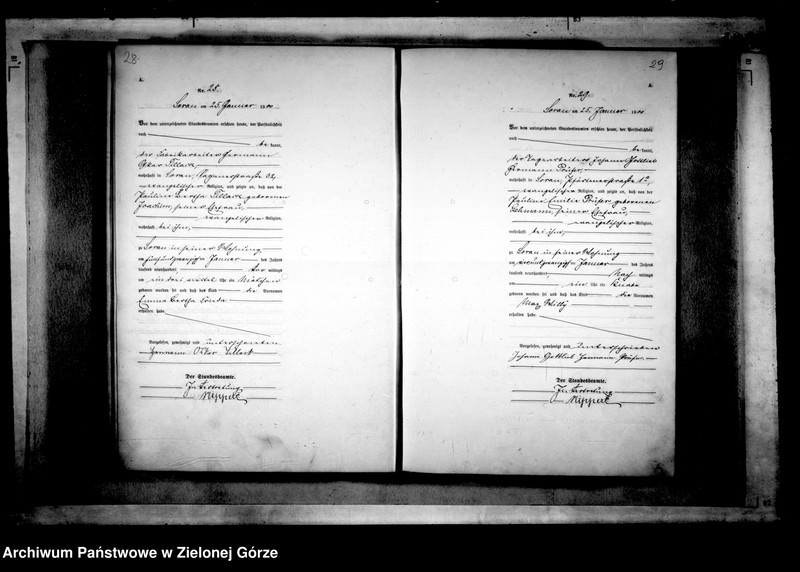 28
A.
Nr. 28.
Sorau am 25. Januar 19
Vor dem unterzeichneten Standesbeamten erschien heute, der Persönlichkeit
nach
be kannt,
der Fabrikarbeiter Hermann
Oskar Tillack
wohnhaft in Sorau, 32,
evangelischer Religion, und zeigte an, daß von der
Pauline Bertha Tillack geborenen
Joachim, seiner Ehefrau,
evangelischer Religion,
wohnhaft bei ihm,
zu Sorau in seiner Wohnung
am fünfundzwanzigsten Januar des Jahres
tausend neunhundert Vor mittags
um Uhr ein Mädchen
geboren worden sei und daß das Kind die Vornamen
Emma Bertha
erhalten habe
Vorgelesen, genehmigt und unterschrieben
Hermann Oskar Tillack
Der Standesbeamte.
In Vertretung
Nippert
29
A.
Nr. 29.
Sorau am 25. Januar 19
Vor dem unterzeichneten Standesbeamten erschien heute, der Persönlichkeit
nach
be kannt,
der Johann Gottlieb
Hermann
wohnhaft in Sorau, 12,
evangelischer Religion, und zeigte an, daß von der
Pauline Emilie geborenen
Lehmann, seiner Ehefrau,
evangelischer Religion,
wohnhaft bei ihm,
zu Sorau in seiner Wohnung
am Januar des Jahres
tausend neunhundert, Nach mittags
um ein Uhr ein Knabe
geboren worden sei und daß das Kind die Vornamen
Max Willy
erhalten habe
Vorgelesen, genehmigt und unterschrieben
Johann Gottlieb Hermann
Der Standesbeamte.
In Vertretung
Nippert
Archiwum Państwowe w Zielonej Górze